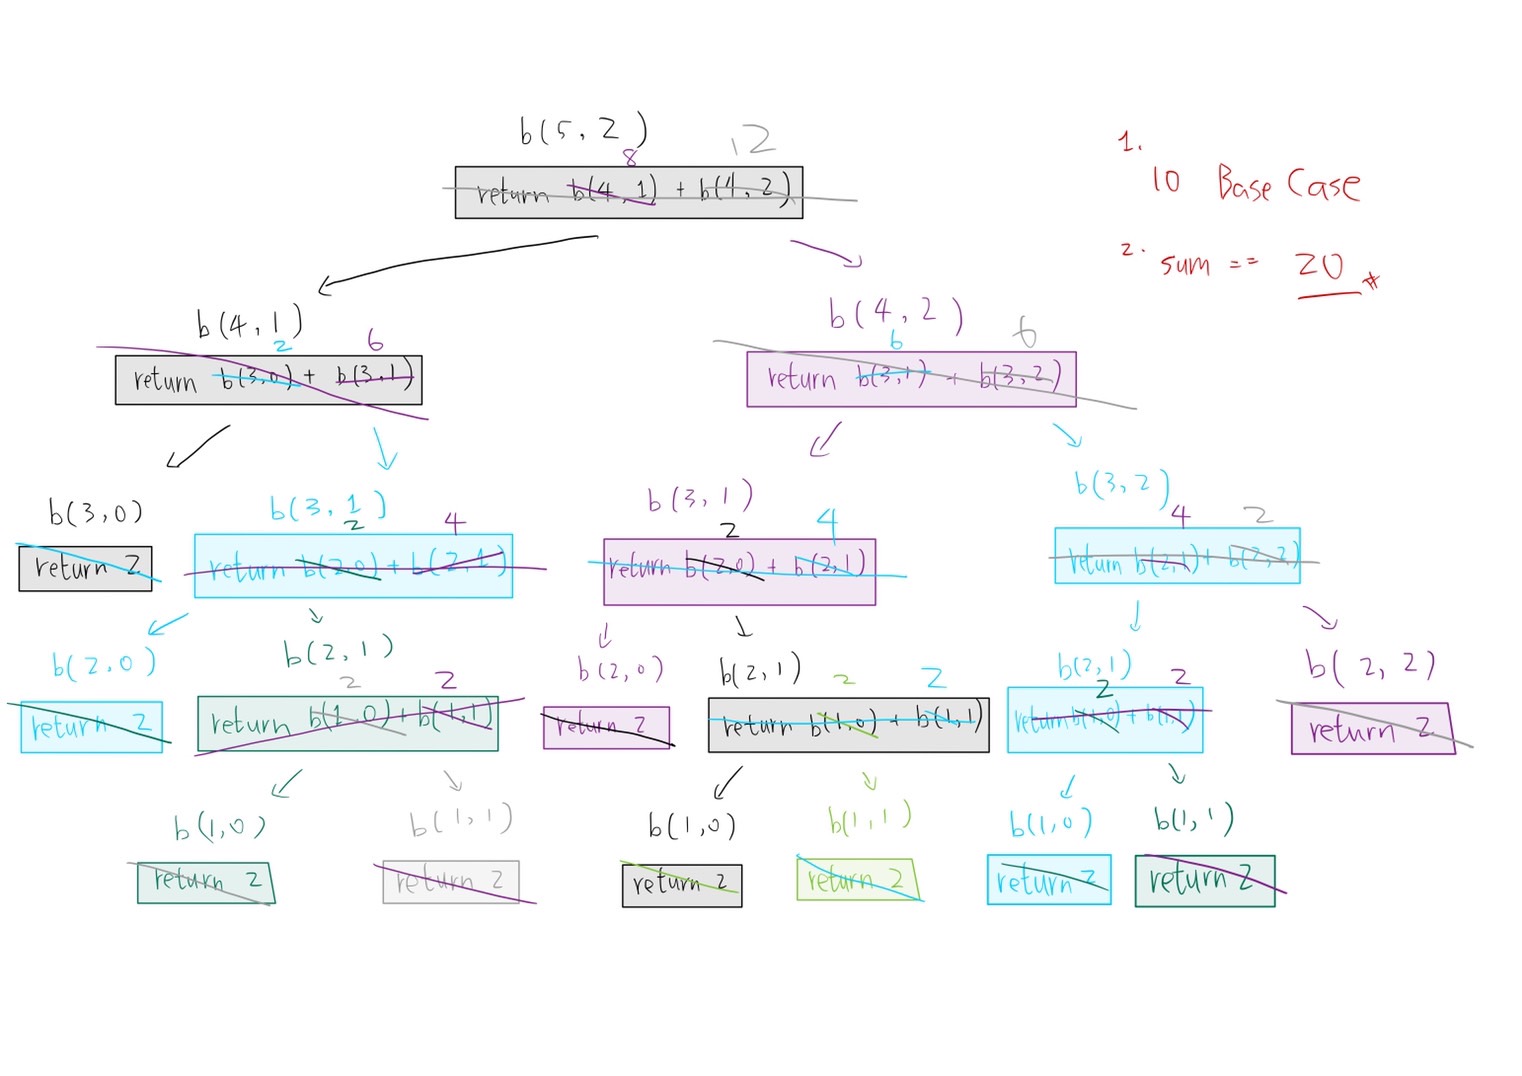 b(5, 2)
8 12
return b(4, 1) + b(4, 2)
1.
10 Base Case
2. sum == 20 *
b(4, 1)
2 6
return b(3,0) + b(3,1)
b(4, 2)
6 6
return b(3,1) + b(3,2)
b(3,0)
return 2
b(3, 1)
2 4
return b(2,0) + b(2,1)
b(3, 1)
2 4
return b(2,0) + b(2,1)
b(3, 2)
4 2
return b(2,1) + b(2,2)
b(2,0)
return 2
b(2, 1)
2 2
return b(1,0) + b(1,1)
b(2,0)
return 2
b(2,1)
2 2
return b(1,0) + b(1,1)
b(2,1)
2 2
return b(1,0) + b(1,1)
b(2, 2)
return 2
b(1,0)
return 2
b(1,1)
return 2
b(1,0)
return 2
b(1,1)
return 2
b(1,0)
return 2
b(1,1)
return 2